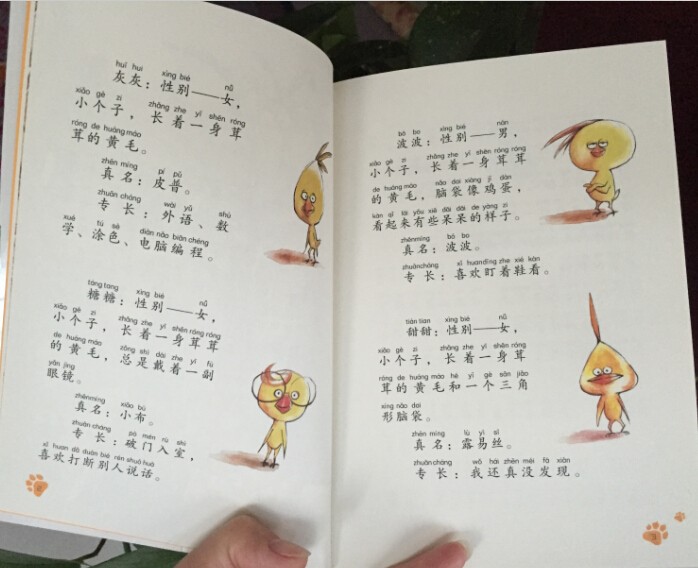 huī huī xìng bié nǚ
灰灰：性别——女，
xiǎo gè zi zhǎng zhe yī shēn róng
小个子，长着一身茸
róng de huáng máo
茸的黄毛。
zhēn míng pí pǔ
真名：皮普。
zhuān cháng wài yǔ shù
专长：外语、数
xué tú sè diàn nǎo biān chéng
学、涂色、电脑编程。
táng tang xìng bié nǚ
糖糖：性别——女，
xiǎo gè zi zhǎng zhe yī shēn róng róng
小个子，长着一身茸茸
de huáng máo zǒng shì dài zhe yī fù
的黄毛，总是戴着一副
yǎn jìng
眼镜。
zhēn míng xiǎo bù
真名：小布。
zhuān cháng pò mén rù shì
专长：破门入室，
xǐ huan dǎ duàn bié rén shuō huà
喜欢打断别人说话。
bō bo xìng bié nán
波波：性别——男，
xiǎo gè zi zhǎng zhe yī shēn róng róng
小个子，长着一身茸茸
de huáng máo nǎo dai xiàng jī dàn
的黄毛，脑袋像鸡蛋，
kàn qǐ lái yǒu xiē dāi dāi de yàng zi
看起来有些呆呆的样子。
zhēn míng bō bo
真名：波波。
zhuān cháng xǐ huan dīng zhe xié kàn
专长：喜欢盯着鞋看。
tián tian xìng bié nǚ
甜甜：性别——女，
xiǎo gè zi zhǎng zhe yī shēn róng
小个子，长着一身茸
róng de huáng máo hé yī gè sān jiǎo
茸的黄毛和一个三角
xíng nǎo dai
形脑袋。
zhēn míng lù yì sī
真名：露易丝。
zhuān cháng wǒ hái zhēn méi fā xiàn
专长：我还真没发现。
3